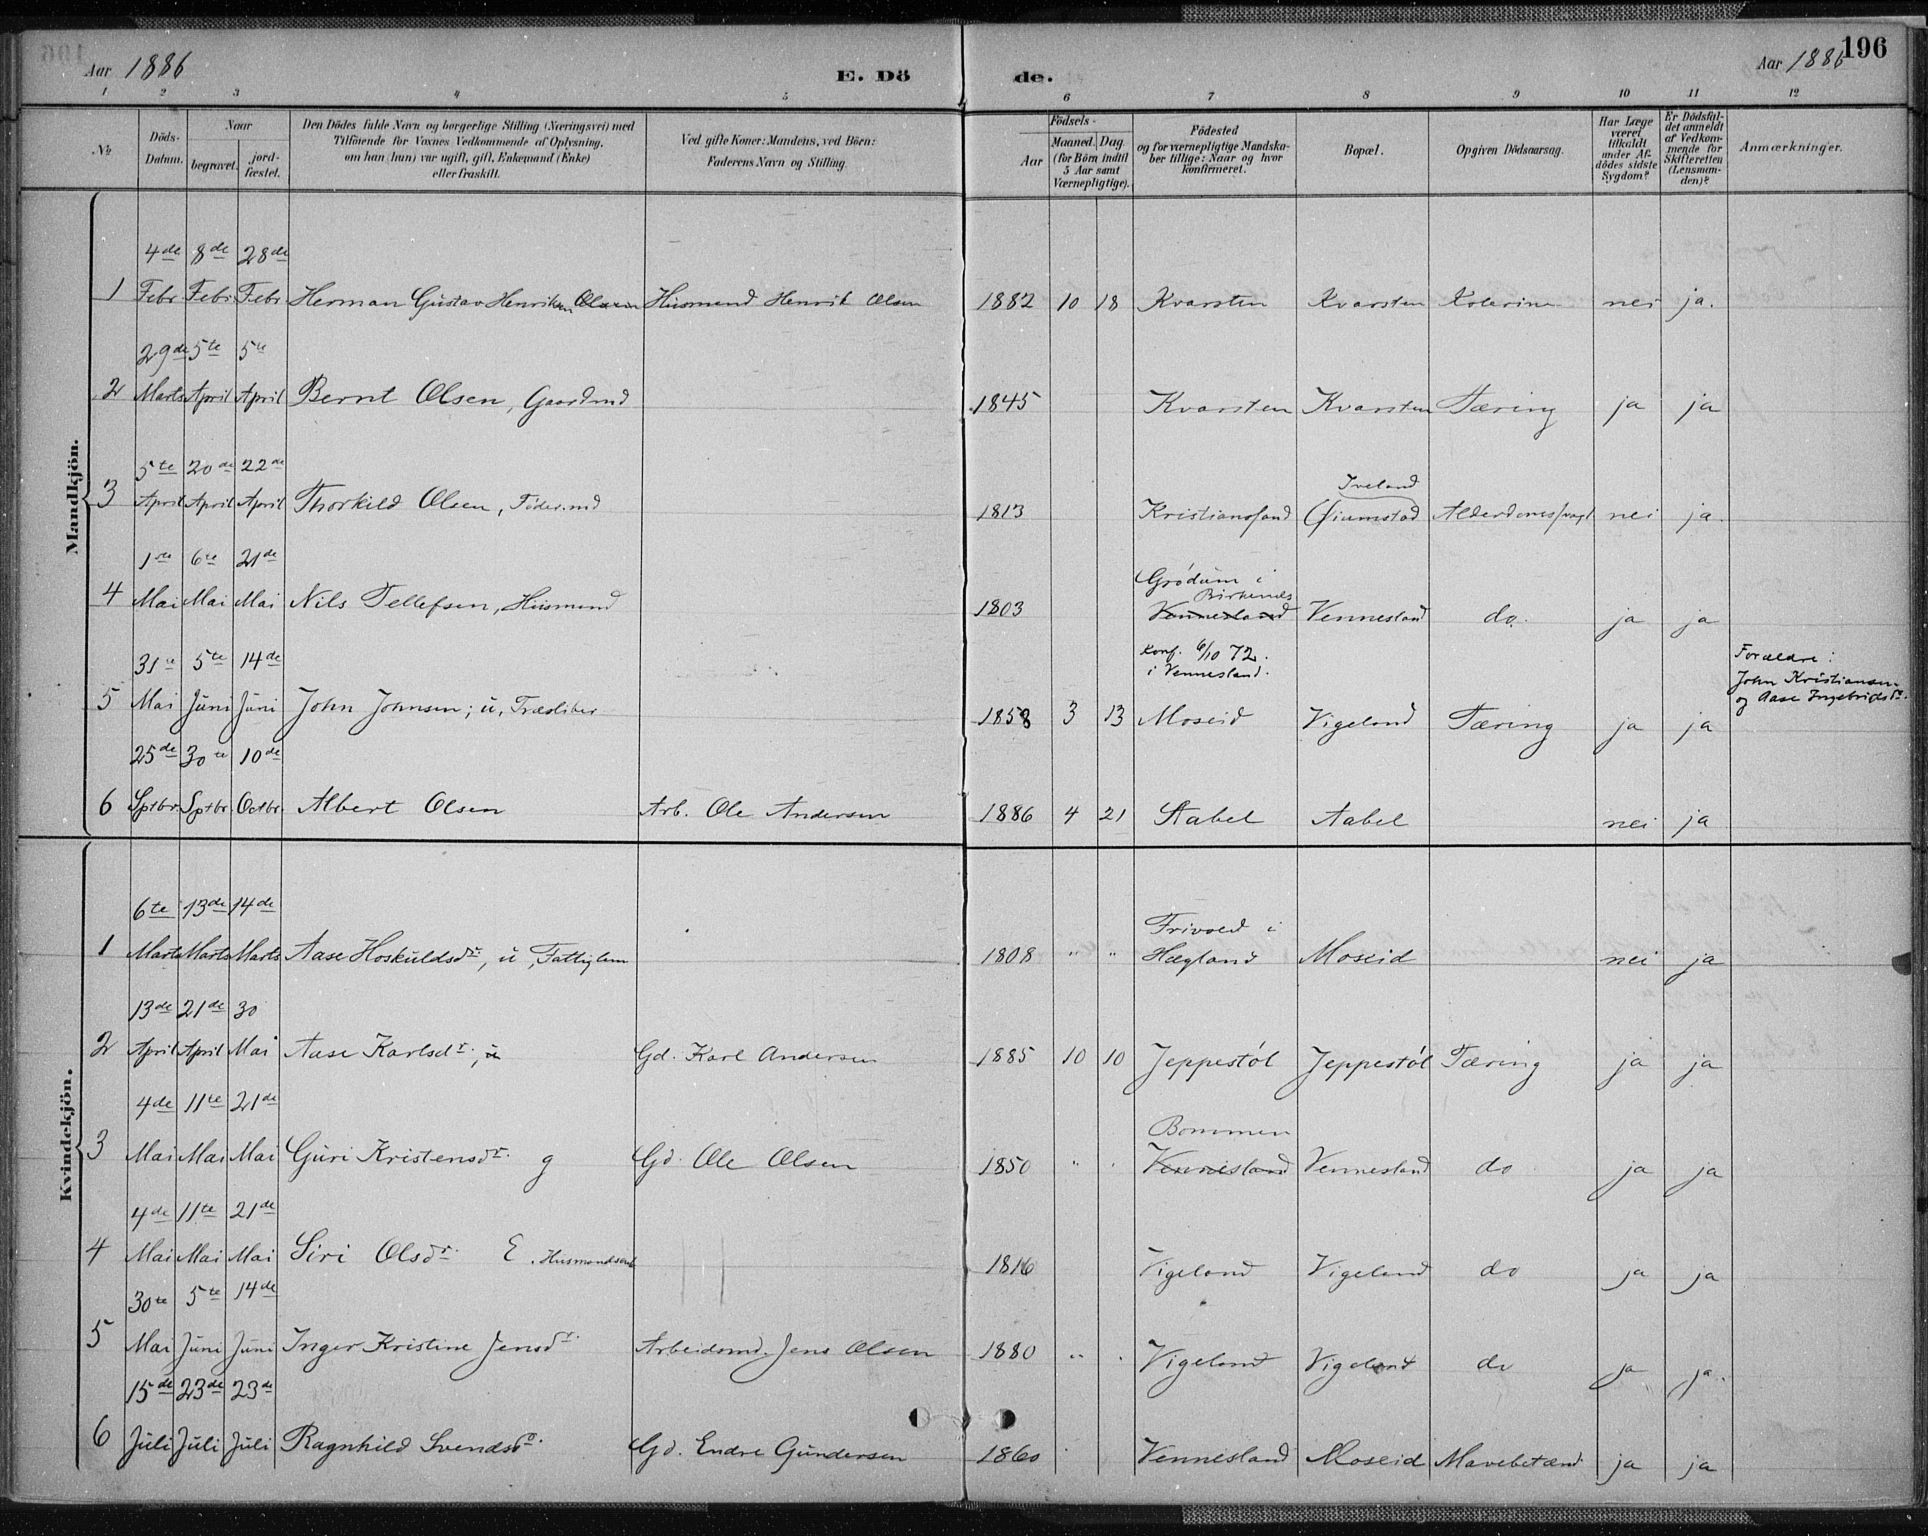 196
Aar 1886
E. Dö de.
Aar 1886
1 2 3 4 5 6 7 8 9 10 11 12
No.
Döds-Datum.
Naar
begravet.
jord-fæstet.
Den Dödes fulde Navn og borgerlige Stilling (Næringsvei) med
Tilföiende for Voxnes Vedkommende af Oplysning,
om han (hun) var ugift, gift, Enkemand (Enke)
eller fraskilt.
Ved gifte Koner: Mandens, ved Börn:
Faderens Navn og Stilling.
Födsels-
Aar
Maaned. Dag.
(for Börn indtil
5 Aar samt
Værnepligtige).
Födested
og for værnepligtige Mandska-
ber tillige: Naar og hvor
konfirmeret.
Bopæl.
Opgiven Dödsaarsag.
Har Læge
været
tilkaldt
under Af-
dödes sidste
Sygdom?
Er Dödsfal-
det anmeldt
af Vedkom-
mende for
Skifteretten
(Lensman-
den)?
Anmærkninger.
Mandkjön.
4de 8de 28de
1 Febr Febr Febr Herman Gustav Henriksen Husmand Henrik Olsen 1882 10 18 Kvarsten Kvarsten Kolerine nei ja.
29de 5te 5te
2 Marts April April Bernt Olsen, Gaardmd 1845 Kvarsten Kvarsten Tæring ja ja
5te 20de 22de
Iveland
3 April April April Thorkild Olsen, Föder.md 1813 Kristianssand Øiumstad Alderdomssvagh nei ja.
1ste 6te 21de
Grødum i
Birkenes
4 Mai Mai Mai Nils Tellefsen, Husmand 1803 Vennesland Vennesland do. ja ja
31te 5te 14de
Konf. 6/10 72.
i Vennesland.
Forældre:
John Kristiansen
og Aase Ingebrigsdr
5 Mai Juni Juni John Johnsen; u, Træsliber 1858 3 13 Moseid Vigeland Tæring ja ja
25de 30te 10de
6 Sptbr Sptbr Octbr. Albert Olsen Arb. Ole Andersen 1886 4 21 Aabel Aabel nei ja
Kvindekjön.
6te 13de 14de
Frivold i
1 Marts Marts Marts Aase Hoskuldsdr, u, Fattiglem 1808 " " Hægland Moseid nei ja
13de 21de 30
2 April April Mai Aase Karlsdr., u Gd. Karl Andersen 1885 10 10 Jeppestøl Jeppestøl Tæring ja ja
4de 11te 21de
Bommen
3 Mai Mai Mai Guri Kristensdr. g Gd. Ole Olsen 1850 " " Vennesland Vennesland do ja ja
4de 11te 21de
4 Mai Mai Mai Siri Olsdr. E. Husmandsenk 1816 Vigeland Vigeland do ja ja
30te 5te 14de
5 Mai Juni Juni Inger Kristine Jensdr. Arbeidsmd. Jens Olsen 1880 " " Vigeland Vigeland do ja ja.
15de 23de 23de
6 Juli Juli Juli Ragnhild Svendsdr. Gd. Endre Gundersen 1860 Vennesland Moseid Mavebetænd ja ja